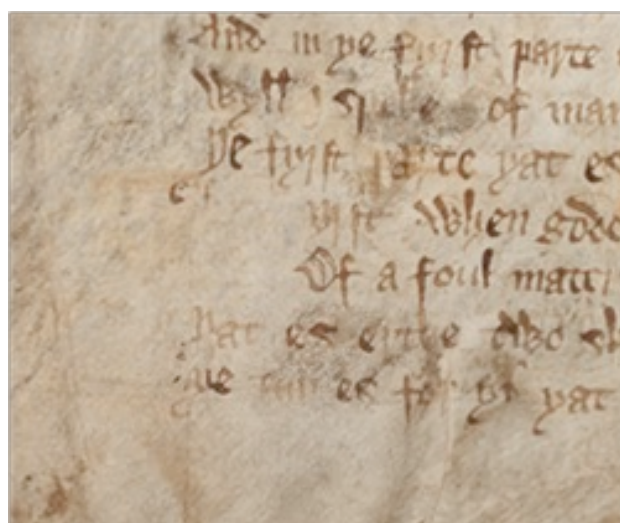 And in ye fyrst parte
Wyll I speke of man
Ye fyrst parte yat es
When godd
Of a foul mater
Yat es erthe two sk
es for yat